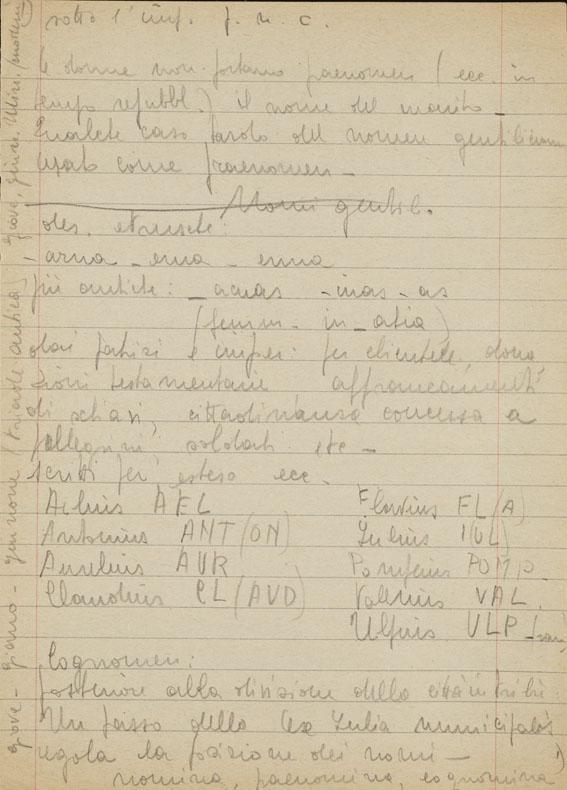 sotto l'imp. p. n. c.
le donne non portano praenomen (ecc. in
tempo repubbl.) il nome del marito -
Qualche caso parola del nomen gentilicium
usato come praenomen -
Nomi gentil.
des. etrusche:
- arna - ena - enna
più antiche: - acnas - inas - as
(femm. in - atia)
dai patrizi e imper: per clientele, dona
zioni testamentarie affrancamenti
di schiavi, cittadinanza concessa a
pellegrini, soldati etc -
scritti per esteso ecc.
Aelius AEL
Flavius FL(A)
Antonius ANT(ON)
Iulius IUL
Aurelius AUR
Pompeius POMP
Claudius CL(AUD)
Valerius VAL.
Ulpius ULP
Cognomen:
posteriore alla divisione della città in tribù:
Un passo della lex Iulia municipalis
regola la posizione dei nomi -
nomina, praenomina, cognomina
Giove - Giano - Giunone (triade antica) Giove, Giun. Min.